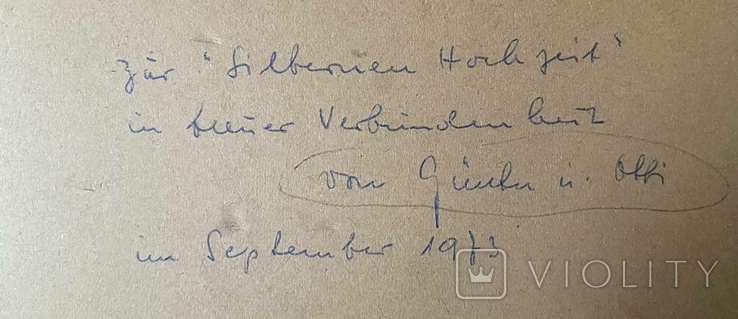 zur "Silbernen Hochzeit"
in treuer Verbundenheit
von Günter u. Otti
im September 1973
VIOLITY